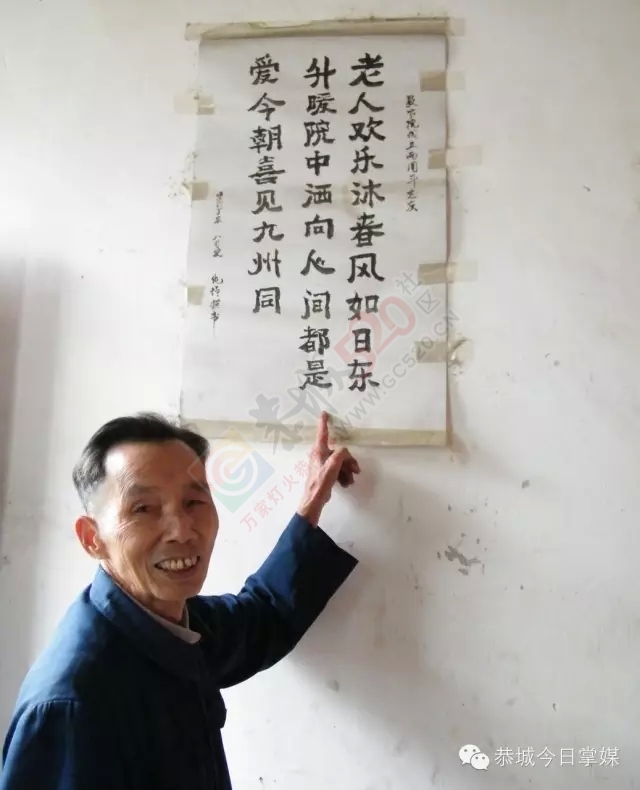 敬老院成立两周年志庆
老人欢乐沐春风如日东
升暖院中洒向人间都是
爱今朝喜见九州同
520社区
WWW.GC520.CN
万家灯火
恭城今日掌媒